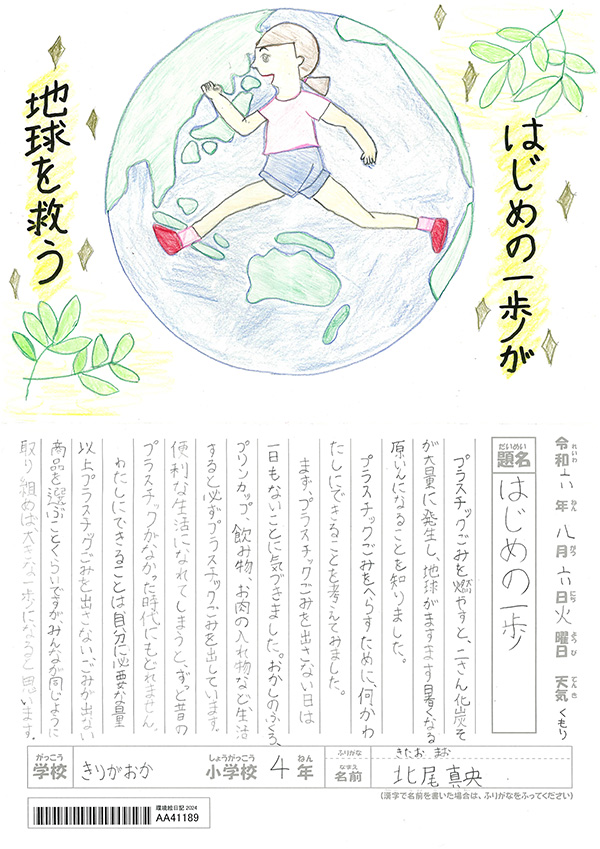 はじめの一歩が
地球を救う
令和六年八月六日火曜日 天気くもり
れいわ ねん がつ にち ようび てんき
だいめい
題名 はじめの一歩
プラスチックごみを燃やすと、二さん化炭そ
が大量に発生し、地球がますます暑くなる
原いんになることを知りました。
プラスチックごみをへらすために、何かわ
たしにできることを考えてみました。
まず、プラスチックごみを出さない日は
一日もないことに気づきました。おかしのふくろ、
プリンカップ、飲み物、お肉の入れ物など生活
すると必ずプラスチックごみを出しています。
便利な生活になれてしまうと、ずっと昔の
プラスチックがなかった時代にもどれません。
わたしにできることは自分に必要な量
以上プラスチックごみを出さない、ごみが出ない
商品を選ぶことくらいですが、みんなが同じように
取り組めば大きな一歩になると思います。
がっこう しょうがっこう ねん
学校 きりがおか 小学校 4年
ふりがな きたお まお
なまえ
名前 北尾真央
(漢字で名前を書いた場合は、ふりがなをふってください)
環境絵日記 2024
AA41189